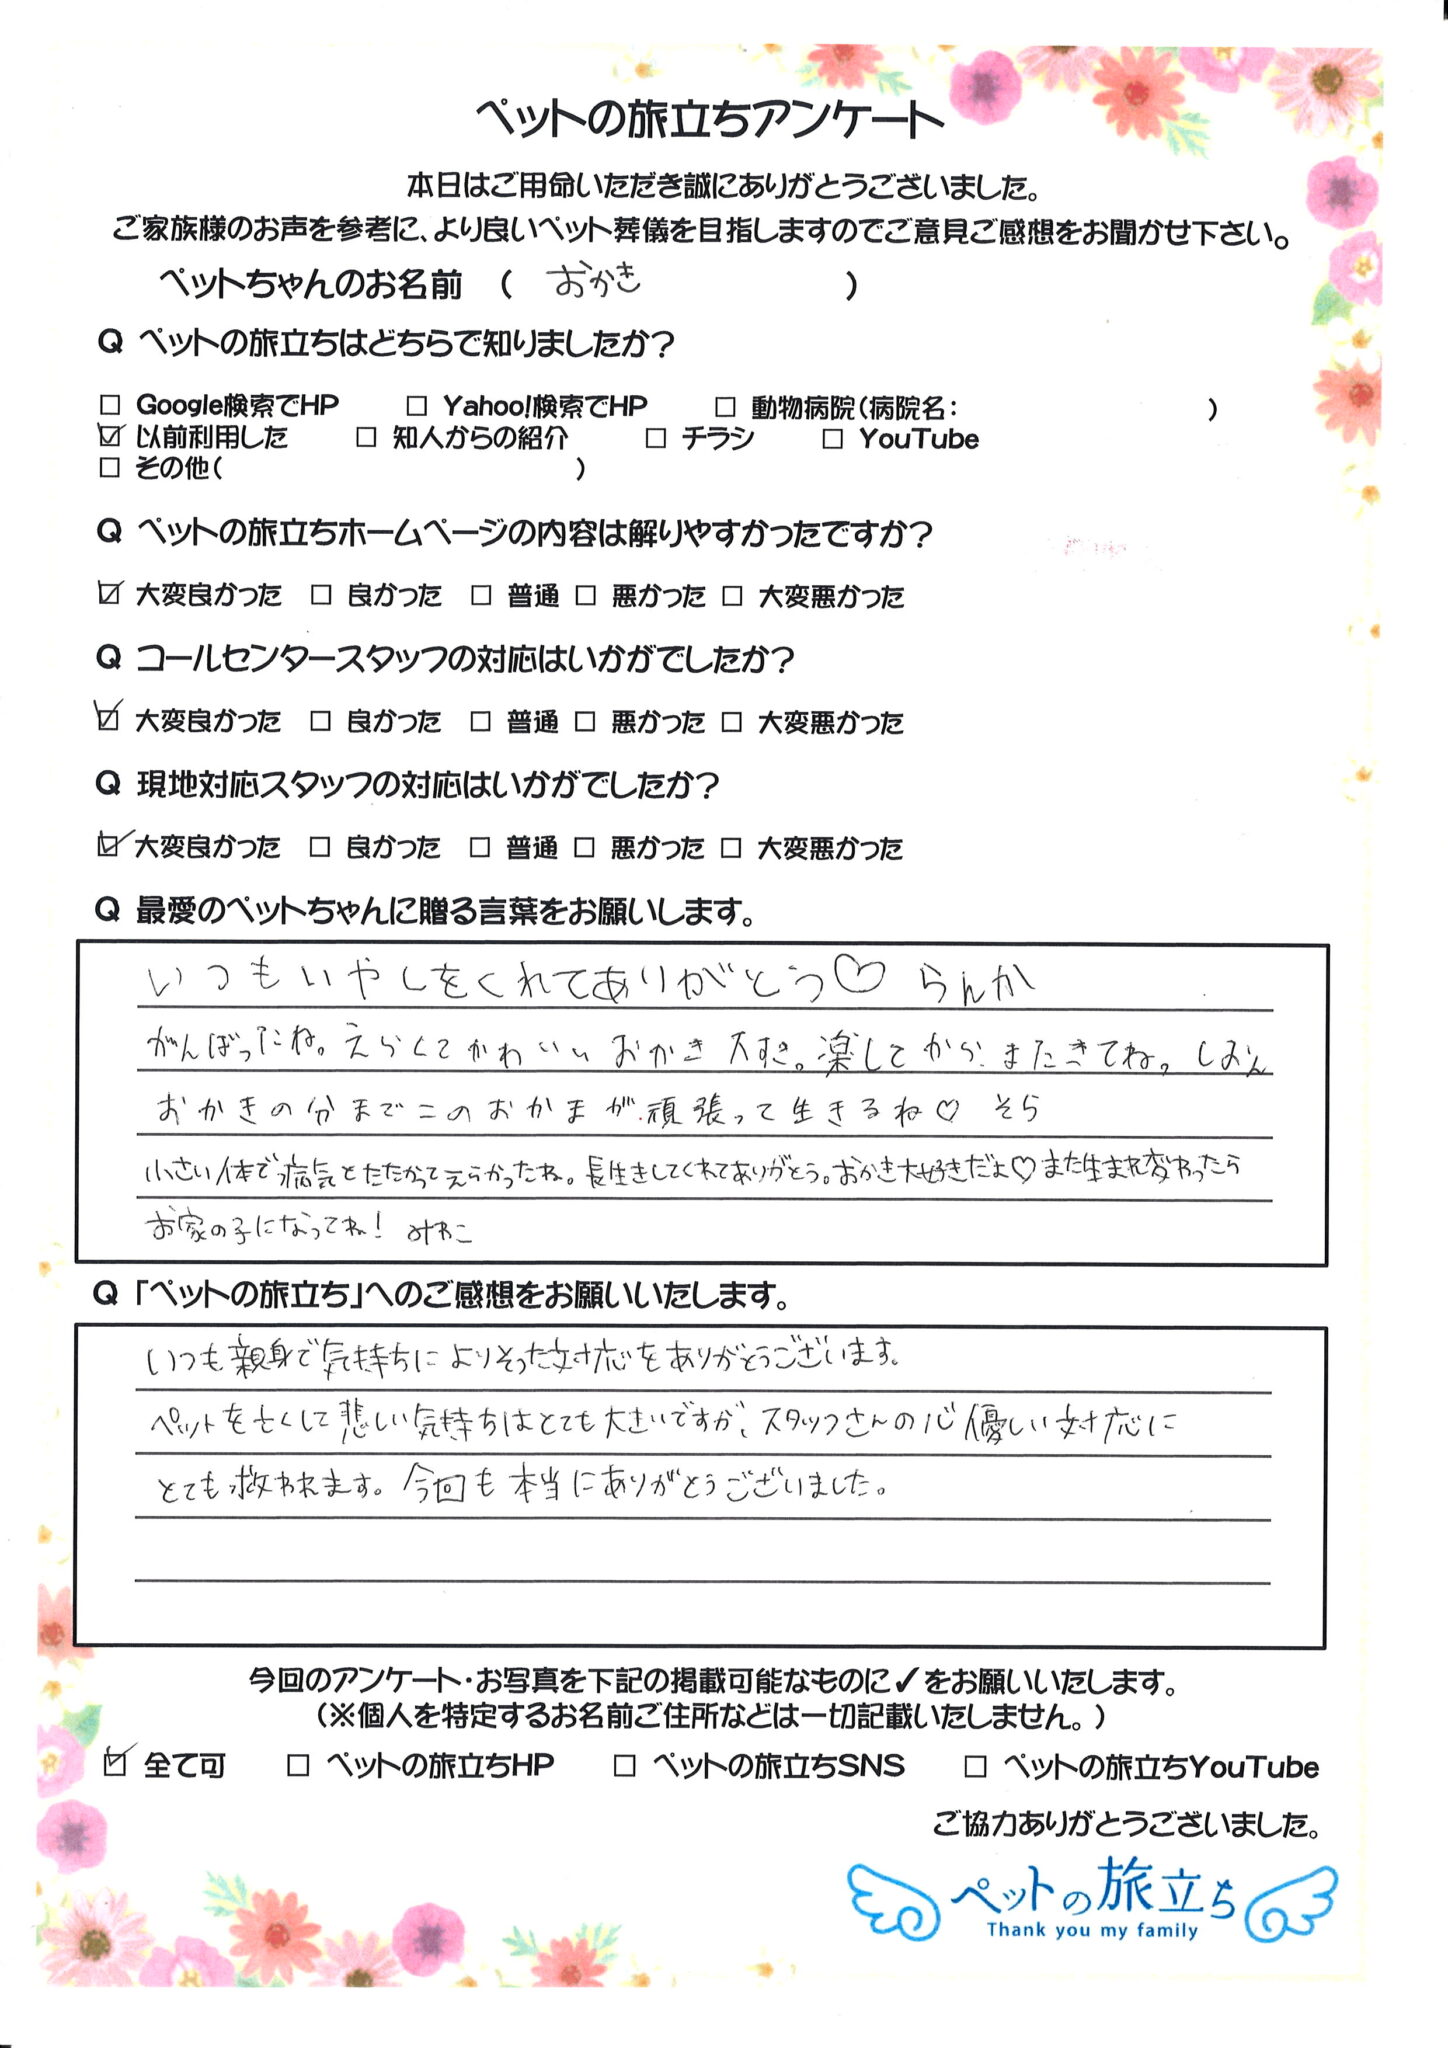 ペットの旅立ちアンケート
本日はご用命いただき誠にありがとうございました。
ご家族様のお声を参考に、より良いペット葬儀を目指しますのでご意見ご感想をお聞かせ下さい。
ペットちゃんのお名前 ( おかき )
Q ペットの旅立ちはどちらで知りましたか?
□ Google検索でHP □ Yahoo!検索でHP □ 動物病院(病院名: )
☑ 以前利用した □ 知人からの紹介 □ チラシ □ YouTube
□ その他( )
Q ペットの旅立ちホームページの内容は解りやすかったですか?
☑ 大変良かった □ 良かった □ 普通 □ 悪かった □ 大変悪かった
Q コールセンタースタッフの対応はいかがでしたか?
☑ 大変良かった □ 良かった □ 普通 □ 悪かった □ 大変悪かった
Q 現地対応スタッフの対応はいかがでしたか?
☑ 大変良かった □ 良かった □ 普通 □ 悪かった □ 大変悪かった
Q 最愛のペットちゃんに贈る言葉をお願いします。
いつもいやしをくれてありがとう♡ らんか
がんばったね。えらくてかわいいおかき大すき。楽してから、またきてね。しおん
おかきの分までこのおかまが頑張って生きるね♡ そら
小さい体で病気とたたかってえらかったね。長生きしてくれてありがとう。おかき大好きだよ♡また生まれ変わったら
お家の子になってね! みわこ
Q 「ペットの旅立ち」へのご感想をお願いいたします。
いつも親身で気持ちによりそった対応をありがとうございます。
ペットを亡くして悲しい気持ちはとても大きいですが、スタッフさんの心優しい対応に
とても救われます。今回も本当にありがとうございました。
今回のアンケート・お写真を下記の掲載可能なものに✓をお願いいたします。
(※個人を特定するお名前ご住所などは一切記載いたしません。)
☑ 全て可 □ ペットの旅立ちHP □ ペットの旅立ちSNS □ ペットの旅立ちYouTube
ご協力ありがとうございました。
ペットの旅立ち
Thank you my family